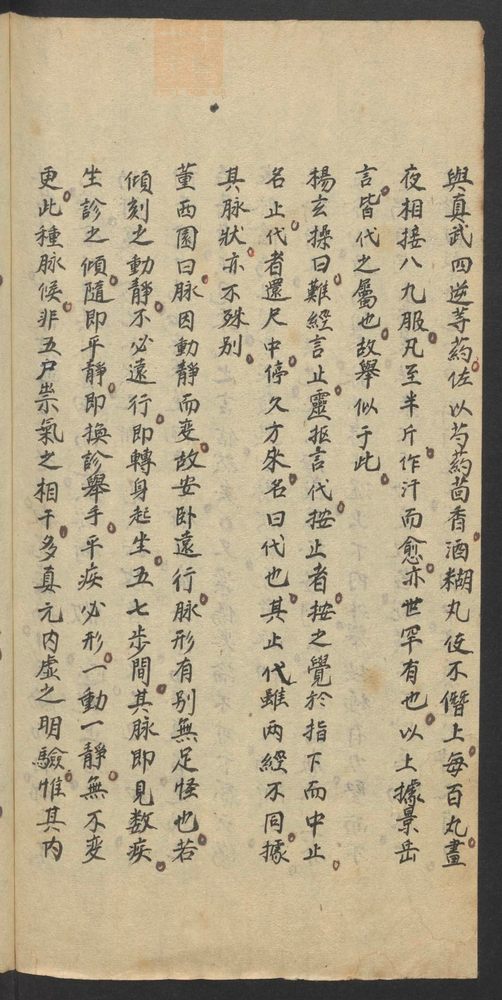 與真武四逆等药佐以芍药茴香酒糊丸使不僭上每百丸晝
夜相接八九服凡至半斤作汗而愈亦世罕有也以上據景岳
言皆代之屬也故舉似于此
楊玄操曰難經言止靈抠言代按止者按之覺於指下而中止
名止代者還尺中停久方來名曰代也其止代雖两經不同據
其脉狀亦不殊别
董西園曰脉因動靜而变故安卧遠行脉形有别無足怪也若
傾刻之動靜不必遠行即轉身起坐五七步間其脉即見数疾
坐診之傾隨即平靜即換診舉手平疾必形一動一靜無不变
更此種脉候非五尸祟氣之相干多真元内虛之明驗惟其内